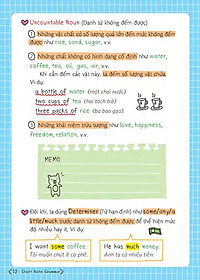 Uncountable Noun (Danh từ không đếm được)
① Những vật chất có số lượng quá lớn đến mức không đếm
được như rice, sand, sugar, v.v.
② Những vật chất không có hình dạng cố định như water,
coffee, tea, oil, gas, air, v.v.
Khi cần đếm các vật này, ta đếm số lượng vật chứa.
Ví dụ:
a bottle of water (một chai nước)
two cups of tea (hai tách trà)
three packs of rice (ba bao gạo)
③ Những khái niệm trừu tượng như love, happiness,
freedom, relation, v.v.
MEMO
Đôi khi, ta dùng Determiner (Từ hạn định) như some/any/a
little/much trước danh từ không đếm được để thể hiện mức
độ nhiều hay ít. Ví dụ:
I want some coffee.
Tôi muốn chút ít cà phê.
He has much money.
Anh ta có nhiều tiền.
12 Short Note Grammar